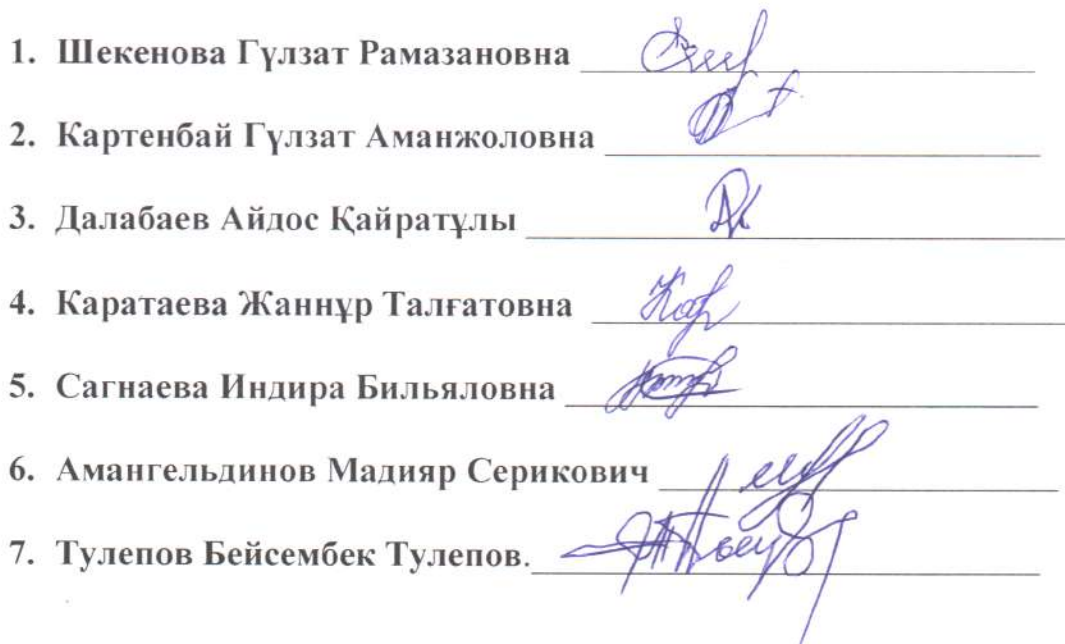 1. Шекенова Гүлзат Рамазановна
2. Картенбай Гүлзат Аманжоловна
3. Далабаев Айдос Қайратұлы
4. Каратаева Жаннұр Талғатовна
5. Сагнаева Индира Бильяловна
6. Амангельдинов Мадияр Серикович
7. Тулепов Бейсембек Тулепов.